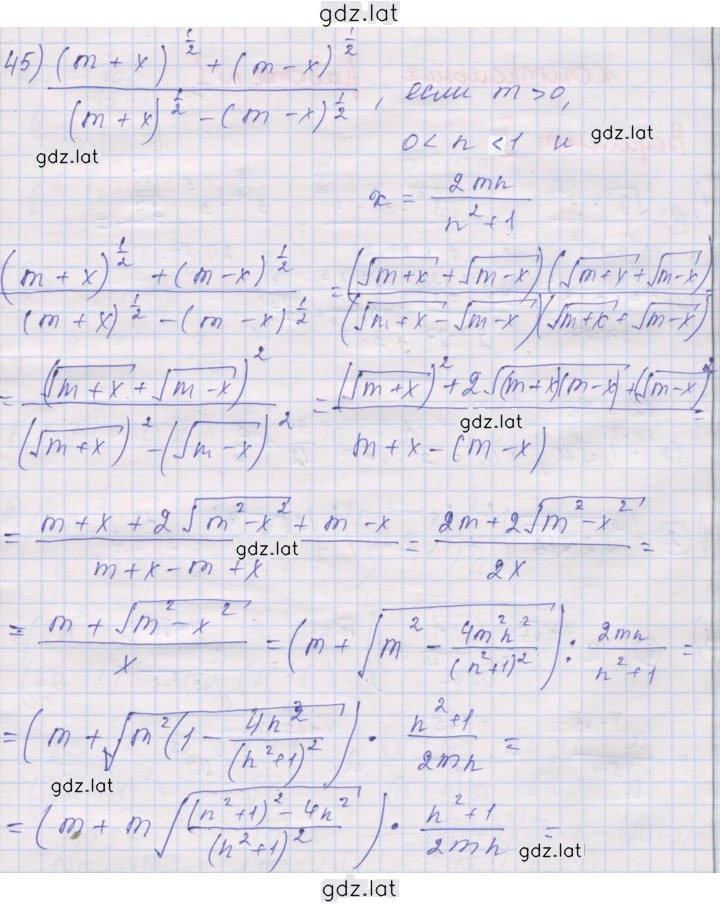 gdz.lat
45) ((m + x)^(1/2) + (m - x)^(1/2)) / ((m + x)^(1/2) - (m - x)^(1/2)), если m > 0,
0 < n < 1 и
gdz.lat
gdz.lat
x = 2mn / (n² + 1)
((m + x)^(1/2) + (m - x)^(1/2)) / ((m + x)^(1/2) - (m - x)^(1/2)) = ((√(m+x) + √(m-x))(√(m+x) + √(m-x))) / ((√(m+x) - √(m-x))(√(m+x) + √(m-x)))
= (√(m+x) + √(m-x))² / ((√(m+x))² - (√(m-x))²) = ((√(m+x))² + 2√((m+x)(m-x)) + (√(m-x))²) / (m + x - (m - x)) =
= (m + x + 2√(m² - x²) + m - x) / (m + x - m + x) = (2m + 2√(m² - x²)) / 2x =
gdz.lat
= (m + √(m² - x²)) / x = (m + √(m² - 4m²n² / (n²+1)²)) : 2mn / (n²+1) =
= (m + √(m²(1 - 4n² / (n²+1)²))) · (n²+1) / 2mn =
gdz.lat
= (m + m√(((n²+1)² - 4n²) / (n²+1)²)) · (n²+1) / 2mn =
gdz.lat
gdz.lat